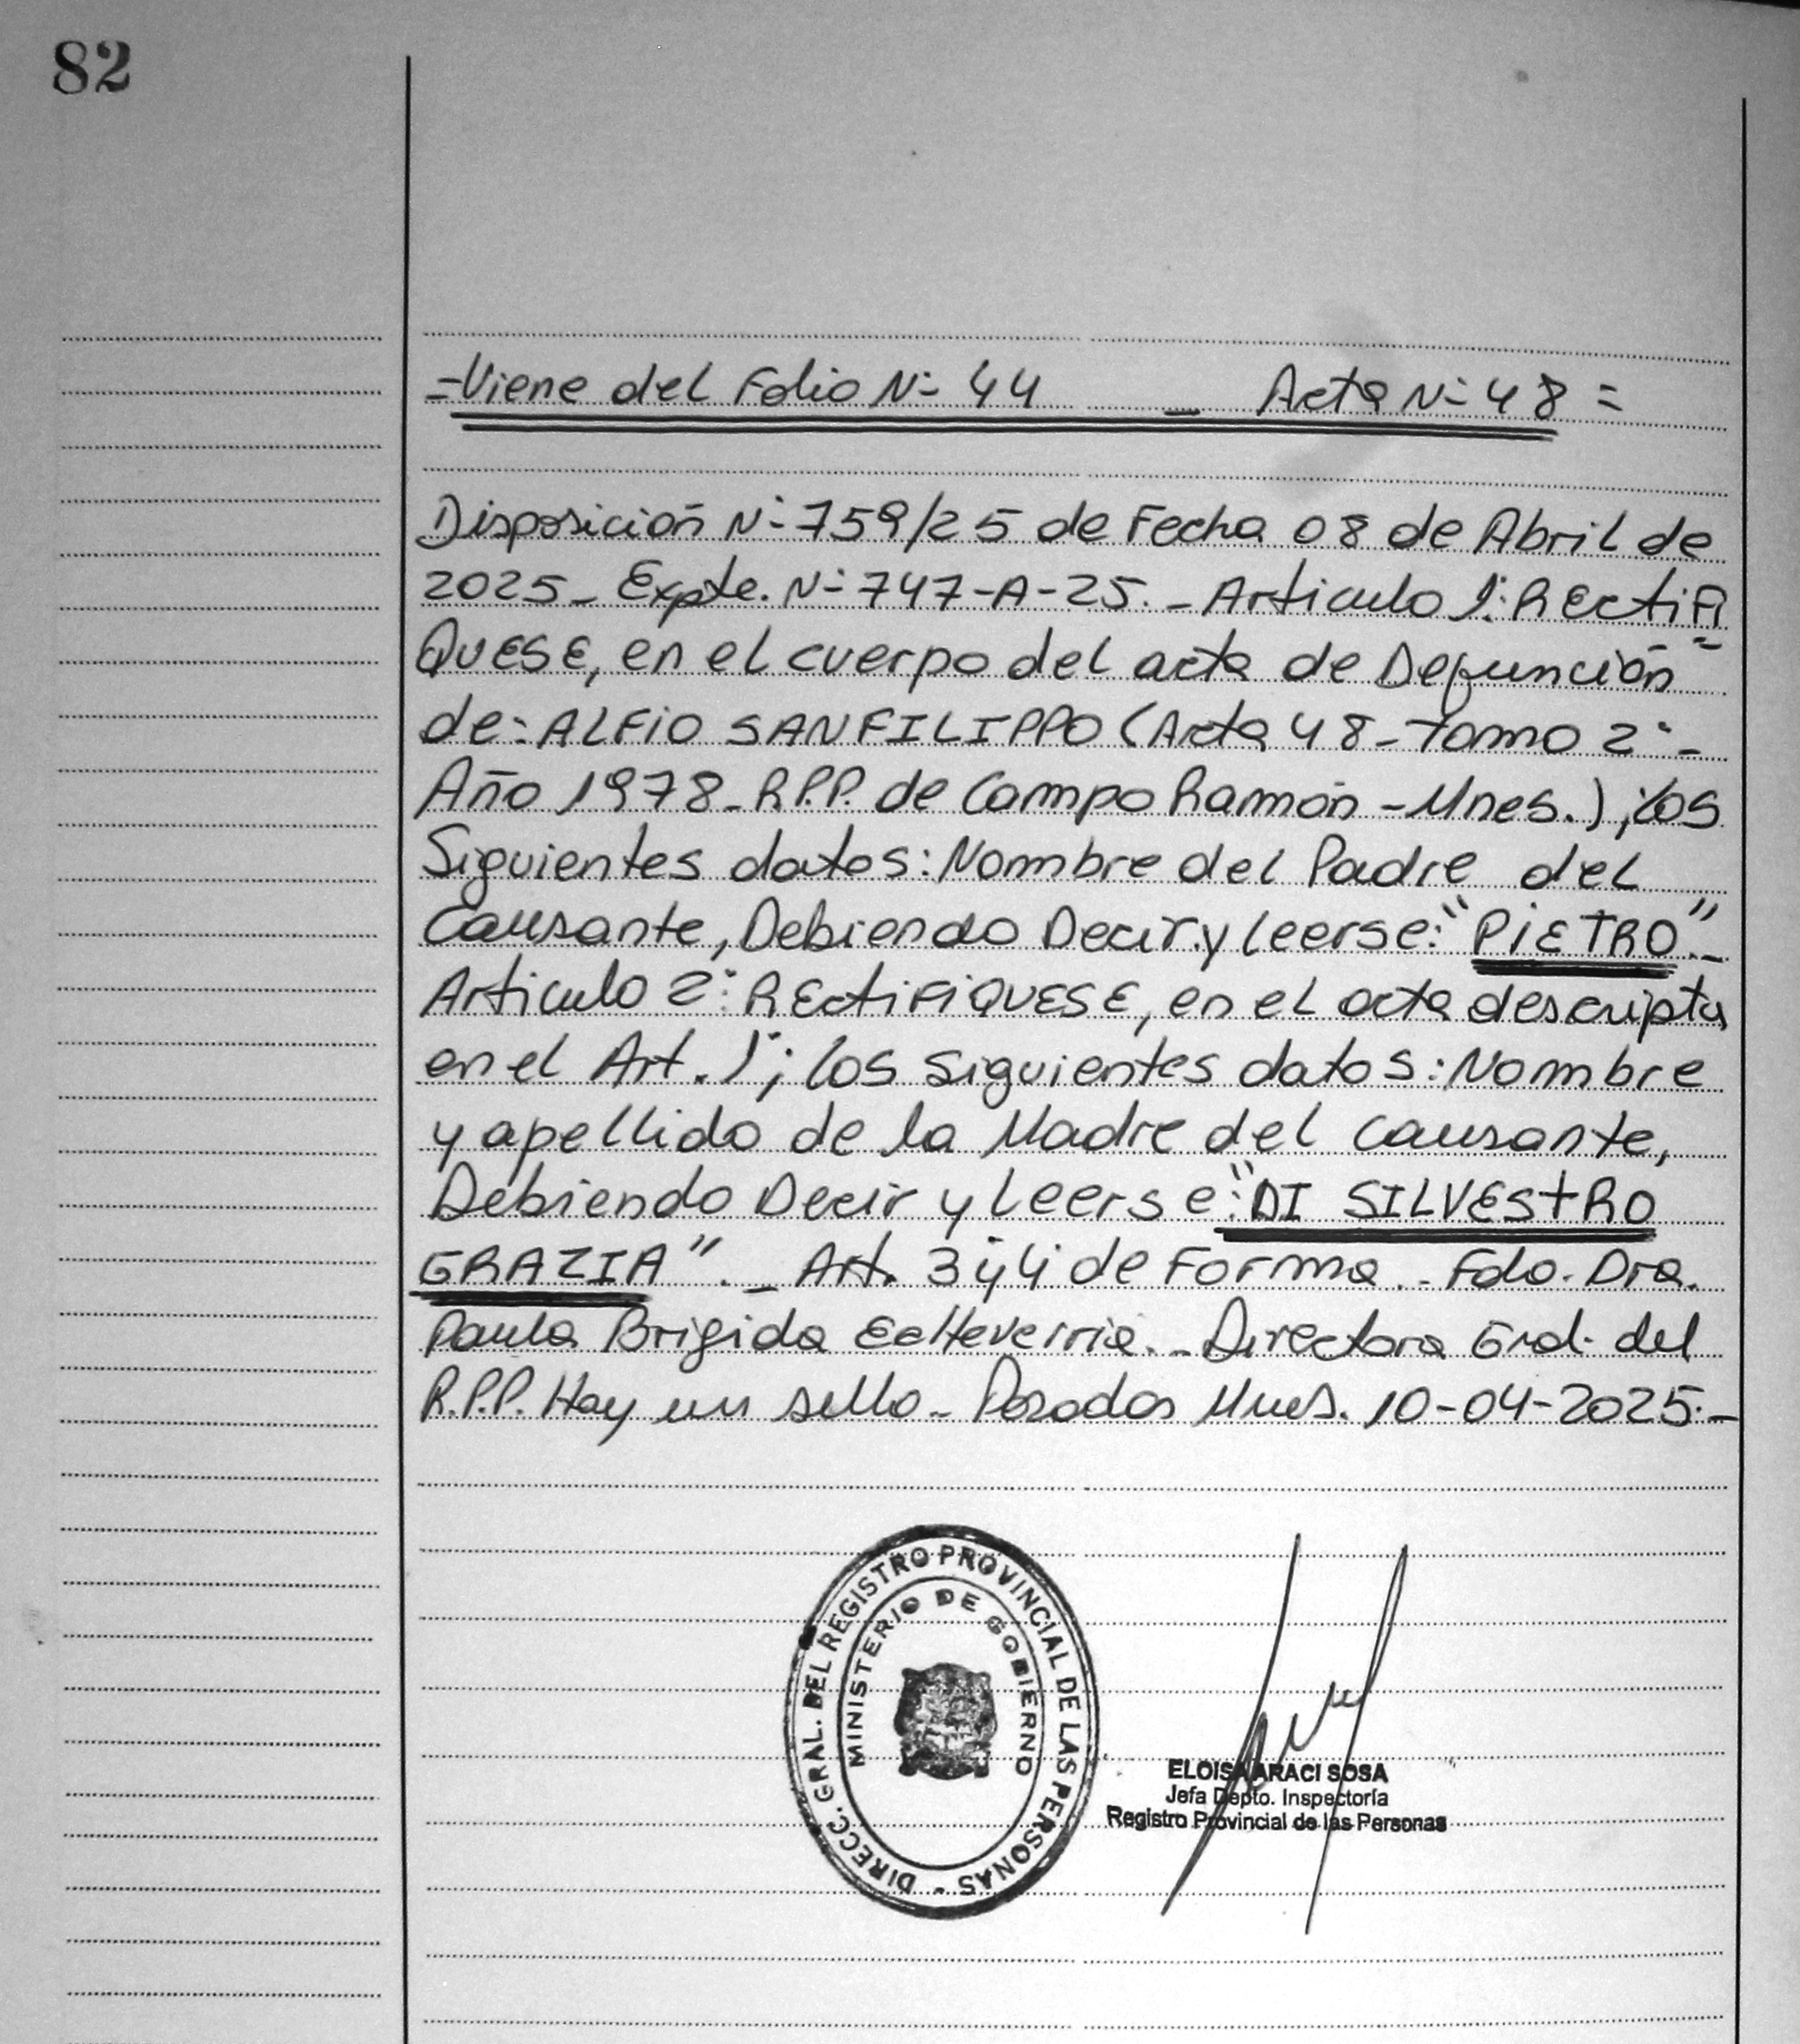 82
=Viene del Folio N° 44 _ Acta N° 48=
Disposición N° 759/25 de Fecha 08 de Abril de
2025_ Expte. N° 747-A-25._ Articulo 1°: RectiFi
QUESE, en el cuerpo del acta de Defunción
de: ALFiO SANFILIPPO (Acta 48_Tomo 2°_
Año 1978_R.P.P. de Campo Ramón - Mnes.); los
Siguientes datos: Nombre del Padre del
Causante, Debiendo Decir y leerse: "PiETRO"._
Articulo 2°: RECtiFiQUESE, en el acta descripta
en el Art. 1°; los siguientes datos: Nombre
y apellido de la Madre del causante,
Debiendo Decir y leerse: "DI SILVEStRO
GRAZIA"._ Art. 3 y 4 de Forma._ Fdo. Dra.
Paula Brigida Echeverria._ Directora Gral. del
R.P.P. Hay un sello_ Posadas Mnes. 10-04-2025._
DIRECC. GRAL. DEL REGISTRO PROVINCIAL DE LAS PERSONAS -
MINISTERIO DE GOBIERNO
ELOISA ARACI SOSA
Jefa Depto. Inspectoría
Registro Provincial de las Personas